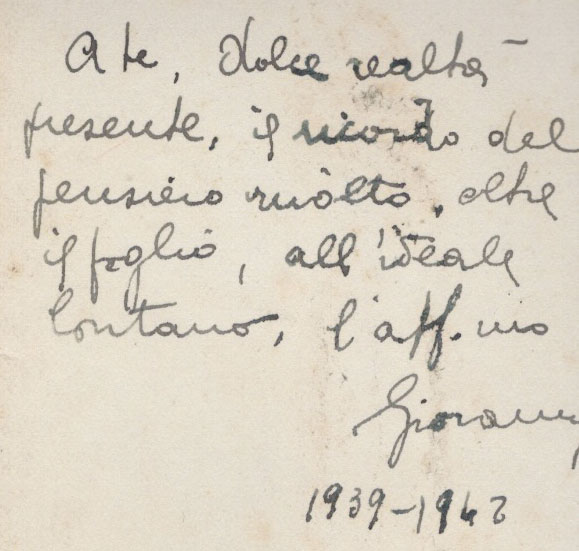 A te, dolce realtà
presente, il ricordo del
pensiero rivolto, oltre
il foglio, all'ideale
lontano, l'aff.mo
Giovanni
1939-1942